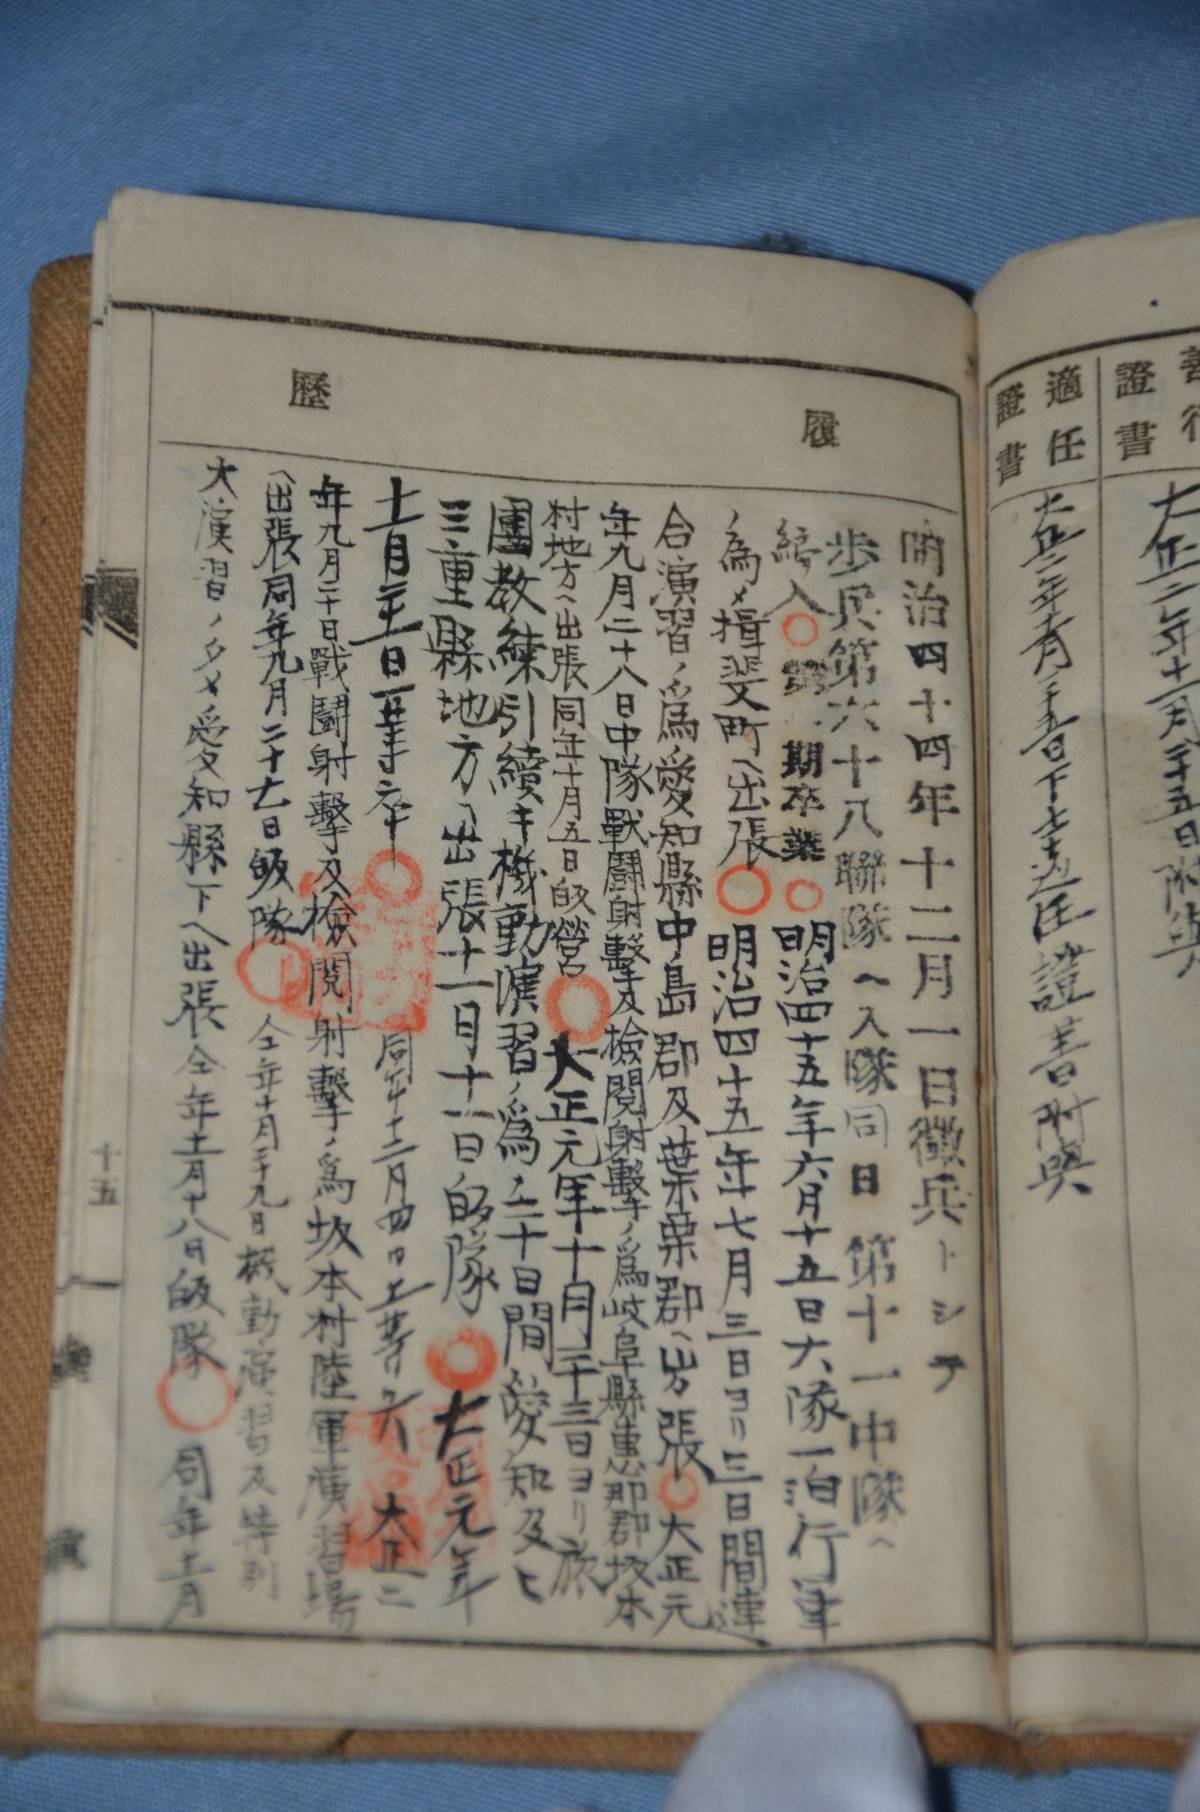 善行
證書
大正二年十一月二十五日附與
適任
證書
大正二年十一月二十五日下士適任證書附與
履歷
明治四十四年十二月一日徵兵トシテ
步兵第六十八聯隊ヘ入隊同日第十一中隊ヘ
編入 期卒業 明治四十五年六月十五日大隊一泊行軍
ノ為メ揖斐町ヘ出張 明治四十五年七月三日ヨリ三日間連
合演習ノ爲愛知縣中島郡及葉栗郡ヘ出張 大正元
年九月二十八日中隊戰鬪射擊及檢閲射擊ノ爲岐阜縣惠那郡坂本
村地方ヘ出張同年十月五日皈營 大正元年十月二十三日ヨリ旅
團教練引續キ機動演習ノ爲ノ二十日間愛知及ヒ
三重縣地方ヘ出張十一月十一日皈隊 大正元年
十一月三十日一等卒 同年十二月四日上等兵 大正二
年九月二十日戰鬪射擊及檢閲射擊ノ爲坂本村陸軍演習場
ヘ出張同年九月二十七日皈隊 仝年十月二十九日機動演習及特別
大演習ノタメ愛知縣下ヘ出張仝年十一月十八日皈隊 同年十一月
十五